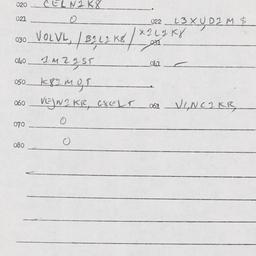 020 CELN2K8
021 0 022 L3XUD2M$
030 VOLVL, /B2L2K8/ X2L2K8
031
040 2MZ2ST 041 -
050 K82MOST
060 VEJN2KR, CXCLT 061 VI,NC2KR,
070 0
080 0